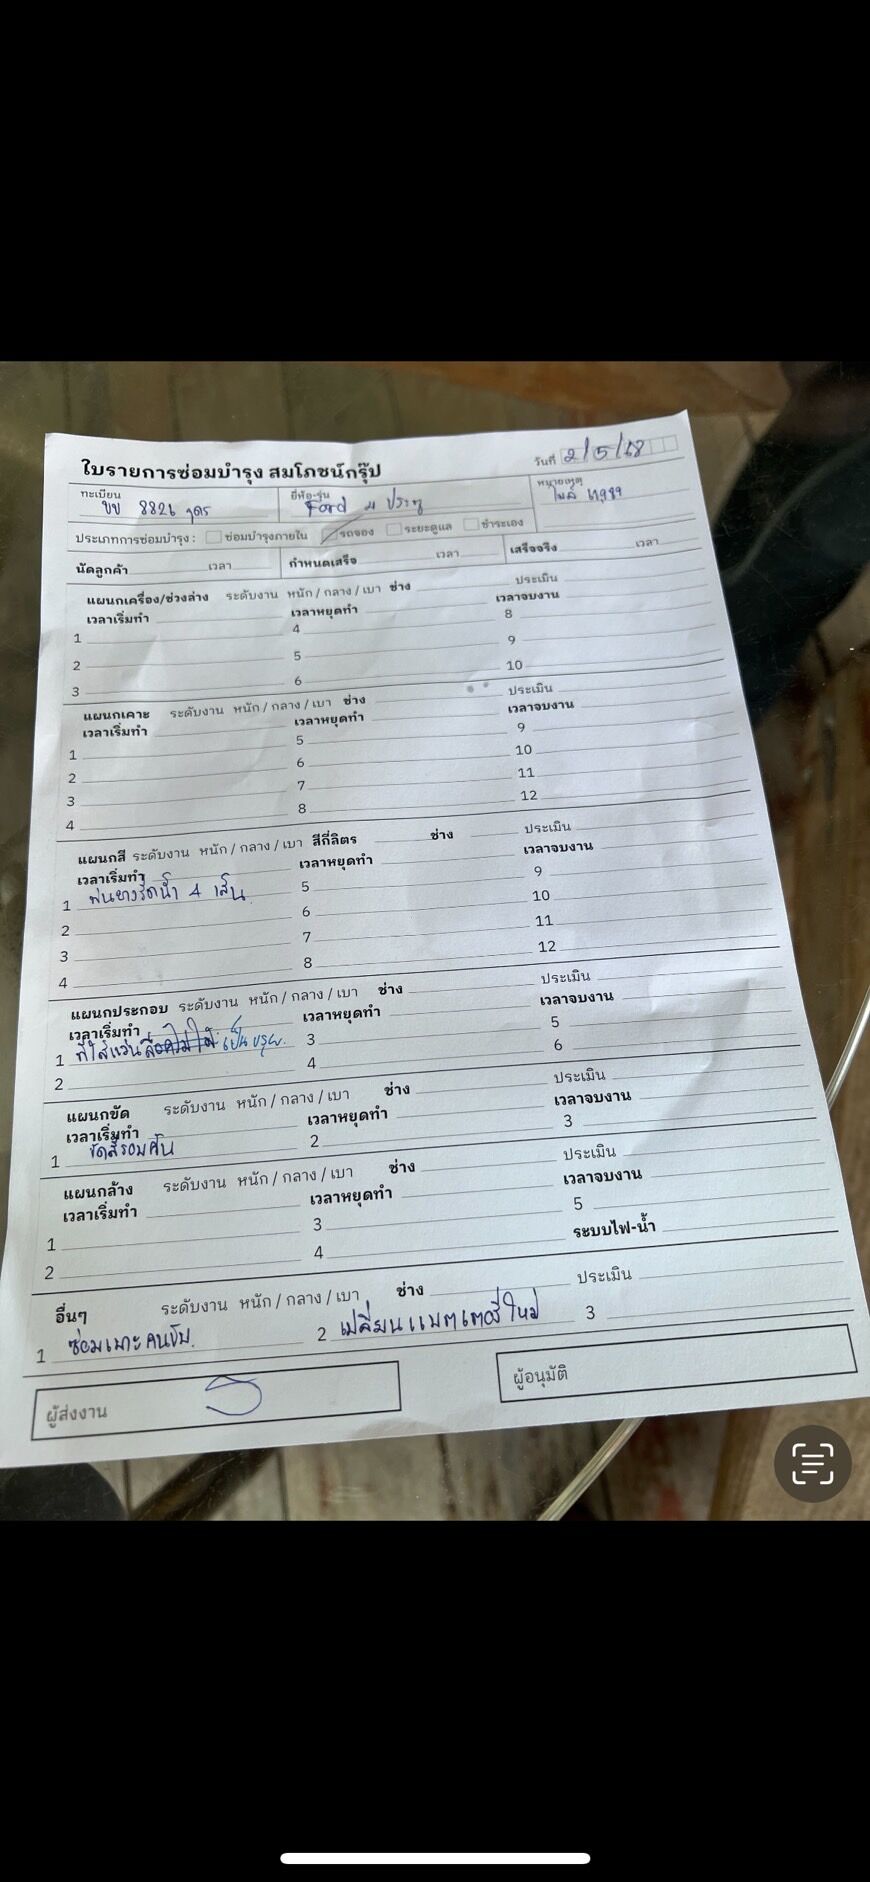 ใบรายการซ่อมบำรุง สมโภชน์กรุ๊ป วันที่ 2/5/68
ทะเบียน ยี่ห้อ-รุ่น หมายเหตุ
ขข 8826 อุดร Ford 4 ประตู ไมล์
ประเภทการซ่อมบำรุง : ซ่อมบำรุงภายใน รถจอง ระยะดูแล ชำระเอง
นัดลูกค้า เวลา กำหนดเสร็จ เวลา เสร็จจริง เวลา
แผนกเครื่อง/ช่วงล่าง ระดับงาน หนัก / กลาง / เบา ช่าง ประเมิน
เวลาเริ่มทำ เวลาหยุดทำ เวลาจบงาน
1 4 8
2 5 9
3 6 10
แผนกเคาะ ระดับงาน หนัก / กลาง / เบา ช่าง ประเมิน
เวลาเริ่มทำ เวลาหยุดทำ เวลาจบงาน
1 5 9
2 6 10
3 7 11
4 8 12
แผนกสี ระดับงาน หนัก / กลาง / เบา สีกี่ลิตร ช่าง ประเมิน
เวลาเริ่มทำ เวลาหยุดทำ เวลาจบงาน
1 พ่นยางรีดน้ำ 4 เส้น 5 9
2 6 10
3 7 11
4 8 12
แผนกประกอบ ระดับงาน หนัก / กลาง / เบา ช่าง ประเมิน
เวลาเริ่มทำ เวลาหยุดทำ เวลาจบงาน
1 ที่ใส่แว่น 3 5
2 4 6
แผนกขัด ระดับงาน หนัก / กลาง / เบา ช่าง ประเมิน
เวลาเริ่มทำ เวลาหยุดทำ เวลาจบงาน
1 ขัดสีรอบคัน 2 3
แผนกล้าง ระดับงาน หนัก / กลาง / เบา ช่าง ประเมิน
เวลาเริ่มทำ เวลาหยุดทำ เวลาจบงาน
1 3 5
2 4 ระบบไฟ-น้ำ
อื่นๆ ระดับงาน หนัก / กลาง / เบา ช่าง ประเมิน
1 ซ่อมเบาะคนขับ 2 เปลี่ยนแบตเตอรี่ใหม่ 3
ผู้ส่งงาน ผู้อนุมัติ